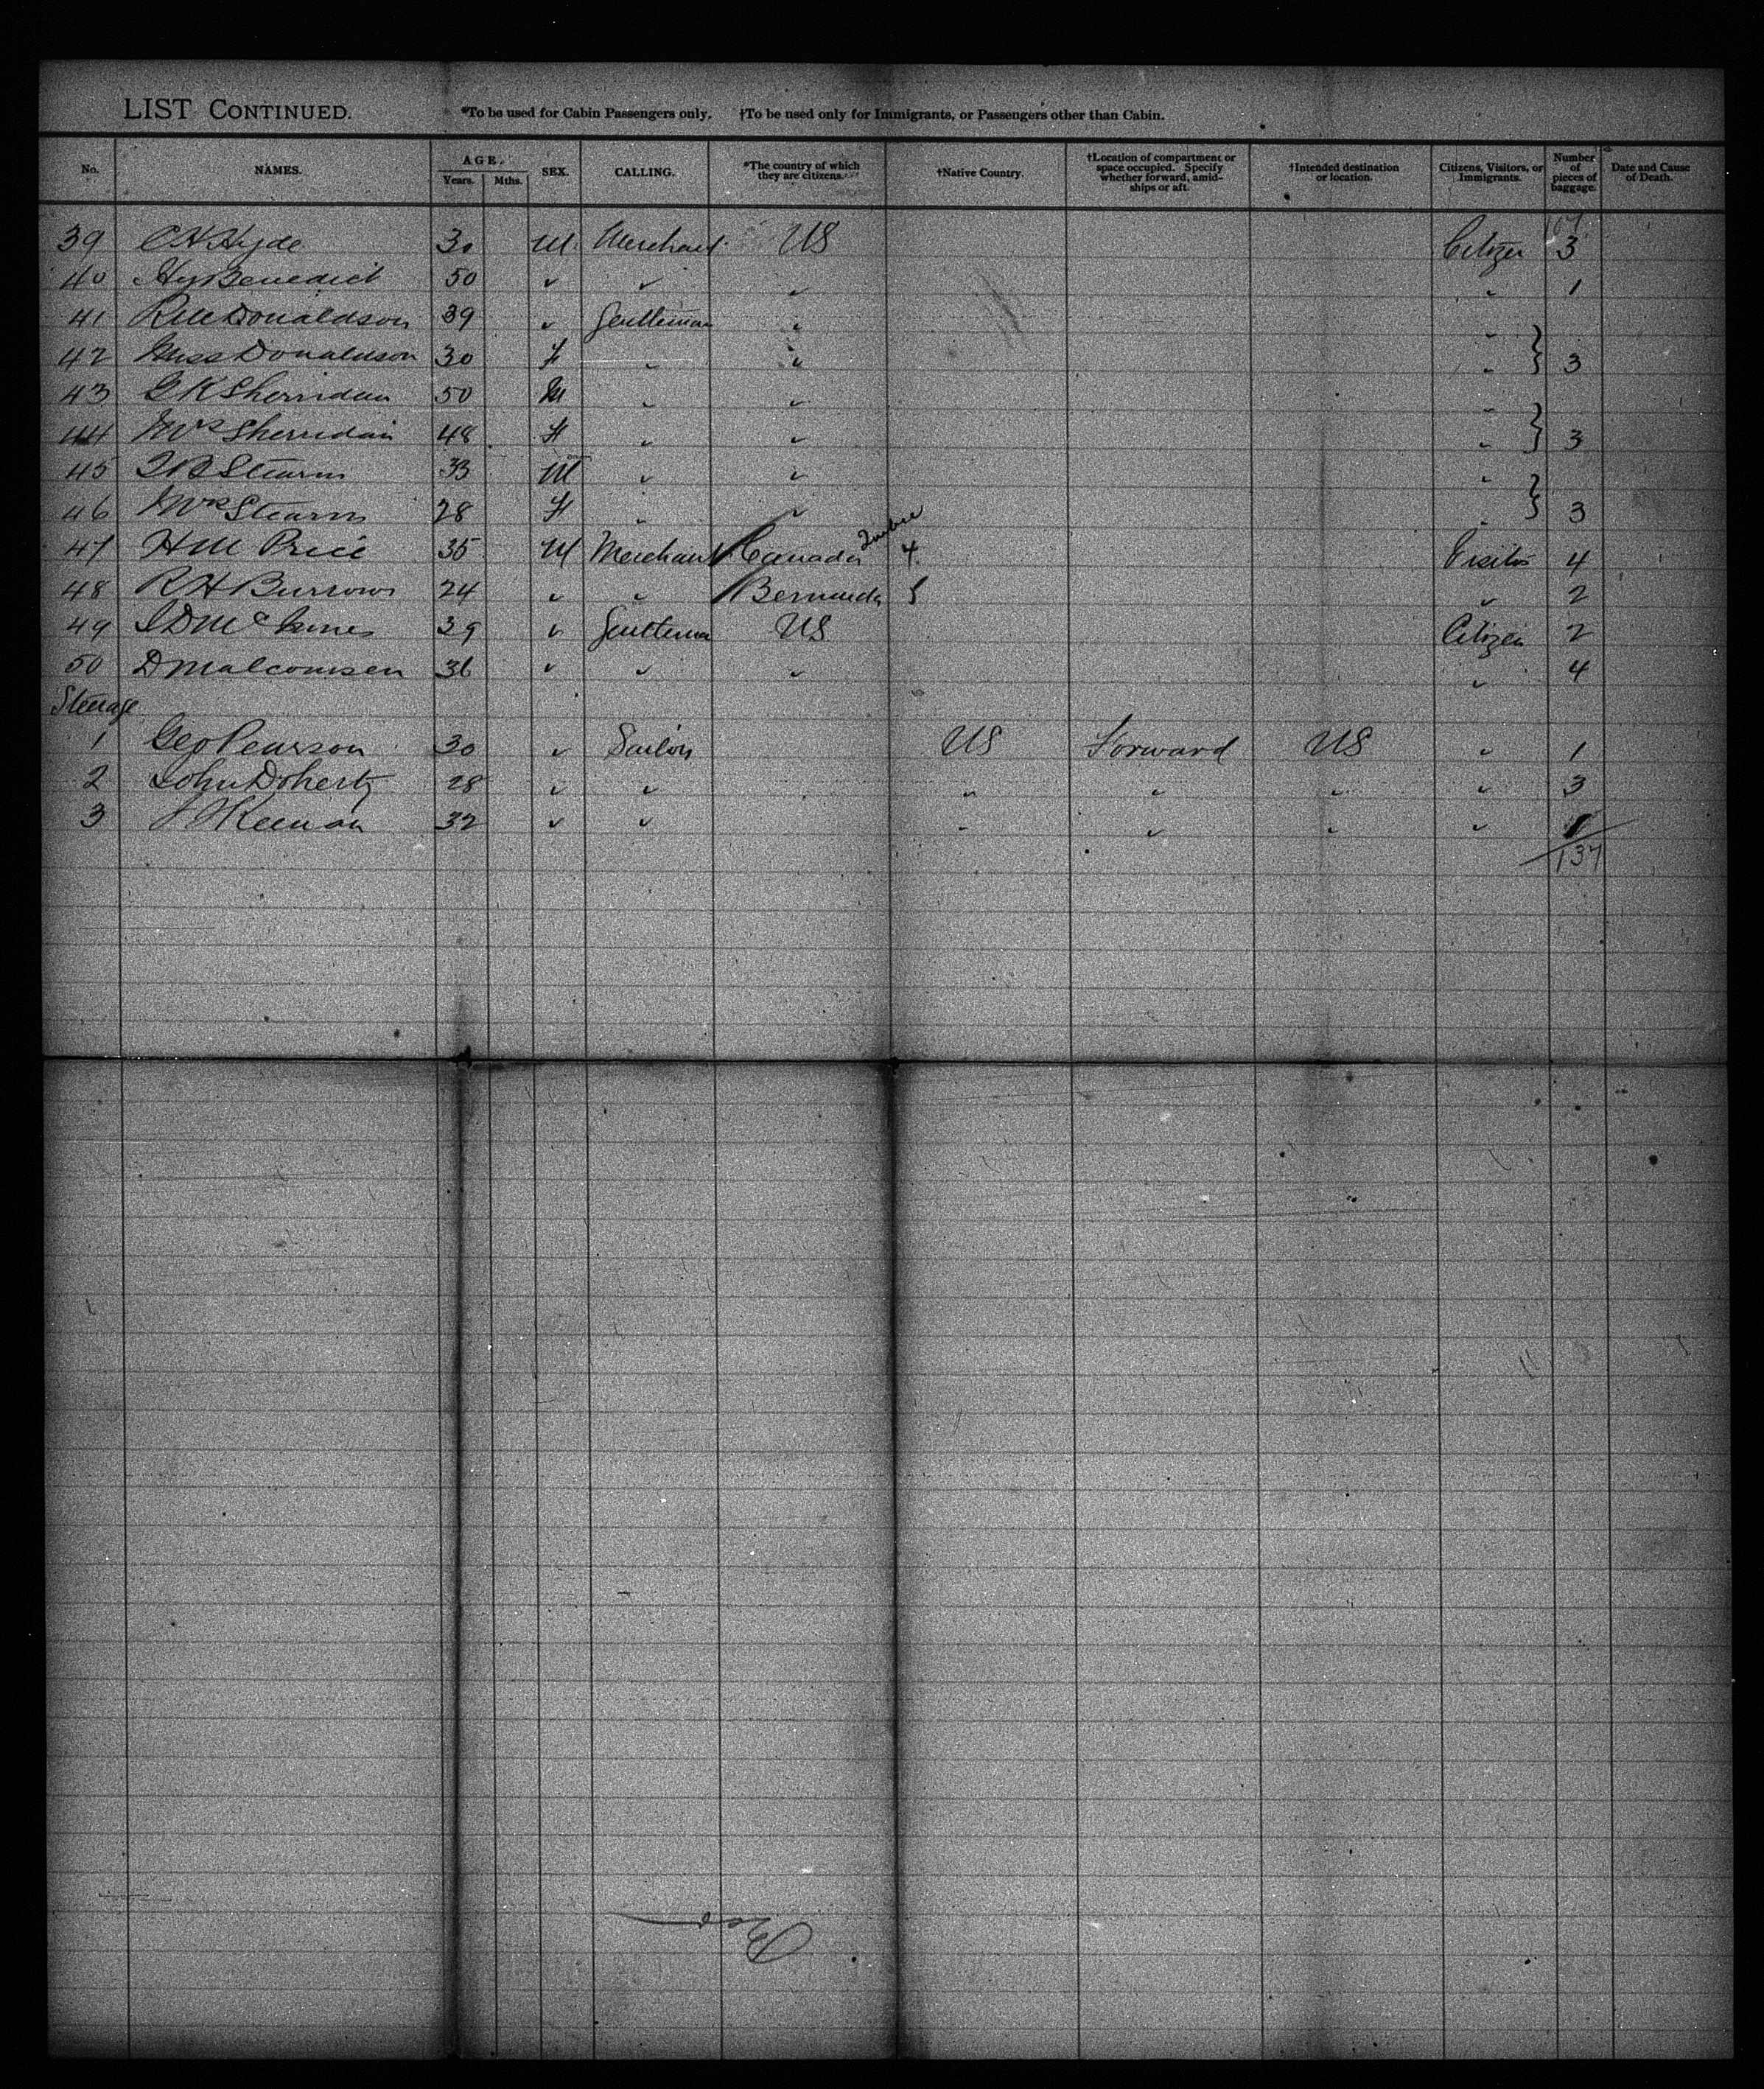 LIST CONTINUED. *To be used for Cabin Passengers only. †To be used only for Immigrants, or Passengers other than Cabin.
No. NAMES. AGE. Years. Mths. SEX. CALLING. *The country of which they are citizens. †Native Country. †Location of compartment or space occupied. Specify whether forward, amidships or aft. †Intended destination or location. Citizens, Visitors, or Immigrants. Number of pieces of baggage. Date and Cause of Death.
107
39 C H Hyde 30 M Merchant US Citizen 3
40 Hy Benedict 50 " " " " 1
41 R M Donaldson 39 " Gentleman " "
42 Miss Donaldson 30 F " " " } 3
43 G K Sherridan 50 M " " "
44 Mrs Sherridan 48 F " " " } 3
45 Stearns 33 M " " "
46 Mrs Stearns 28 F " " " } 3
47 H M Price 35 M Merchant Canada 4 Visitor 4
48 R H Burrows 24 " " Bermuda " 2
49 29 " Gentleman US Citizen 2
50 D Malcomsen 36 " " " " 4
Steerage
1 Geo Pearson 30 " Sailor US Forward US " 1
2 John Doherty 28 " " " " " " 3
3 Keenan 32 " " " " " " 1
137